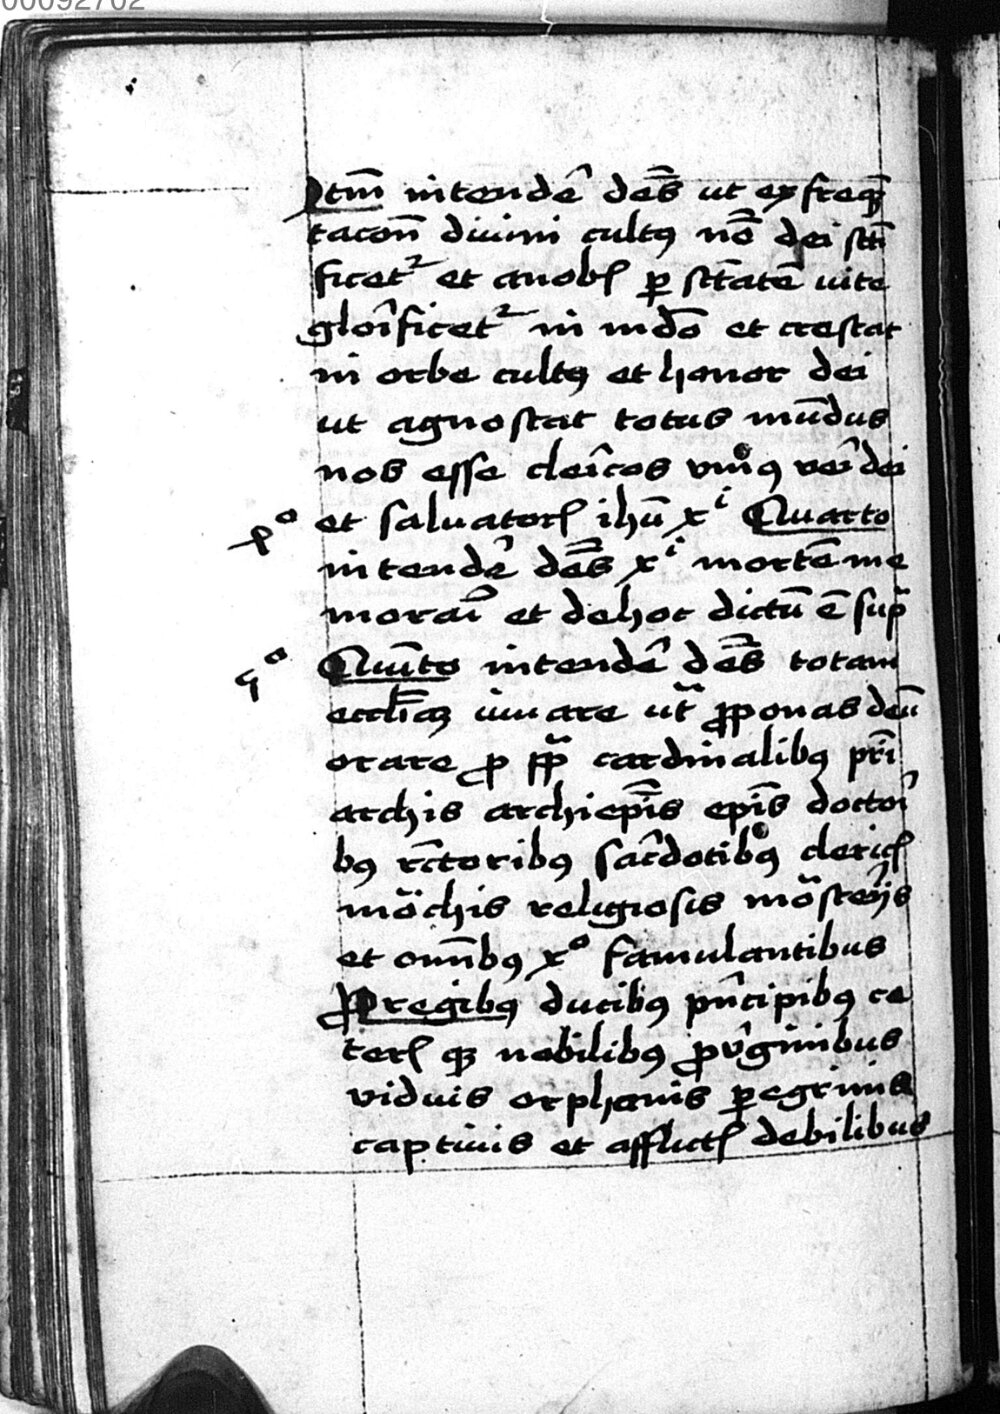 00092702
Itm̄ intendē dēs ut ex freq̄
tacōn diuini cultꝰ nōe dei sct̄i
ficetʳ et a nobis ꝑ sct̄atē uite
glor̄ificetʳ in mdō et crescat
in orbe cultꝰ et honor dei
ut agnoscat totus mūdus
nos esse cler̄icos vniꝰ ver̄i dei
et saluatorꝭ ihū xⁱ Quarto
4º
intendē dēs xⁱ mortē me
morarī et de hoc dictū ē supᵃ
Quīto intendē dēs totam
5º
eccl̄iaꝫ iuuare utᵃ ꝓponas deū
orare ꝓ pp̄a cardinalibꝰ pr̄i
archis archiep̄is ep̄is doctori
bꝰ rc̄toribꝰ sac̄dotibꝰ clericꝭ
mōchis religiosis mōster̄ijs
et omībꝰ xº famulantibus
ꝓ regibꝰ ducibꝰ pn̄cipibꝰ ce
terꝭ qꝫ nobilibꝰ ꝓ v̄ginibus
viduis orphanis ꝑegrinis
captiuis et afflictꝭ debilibus